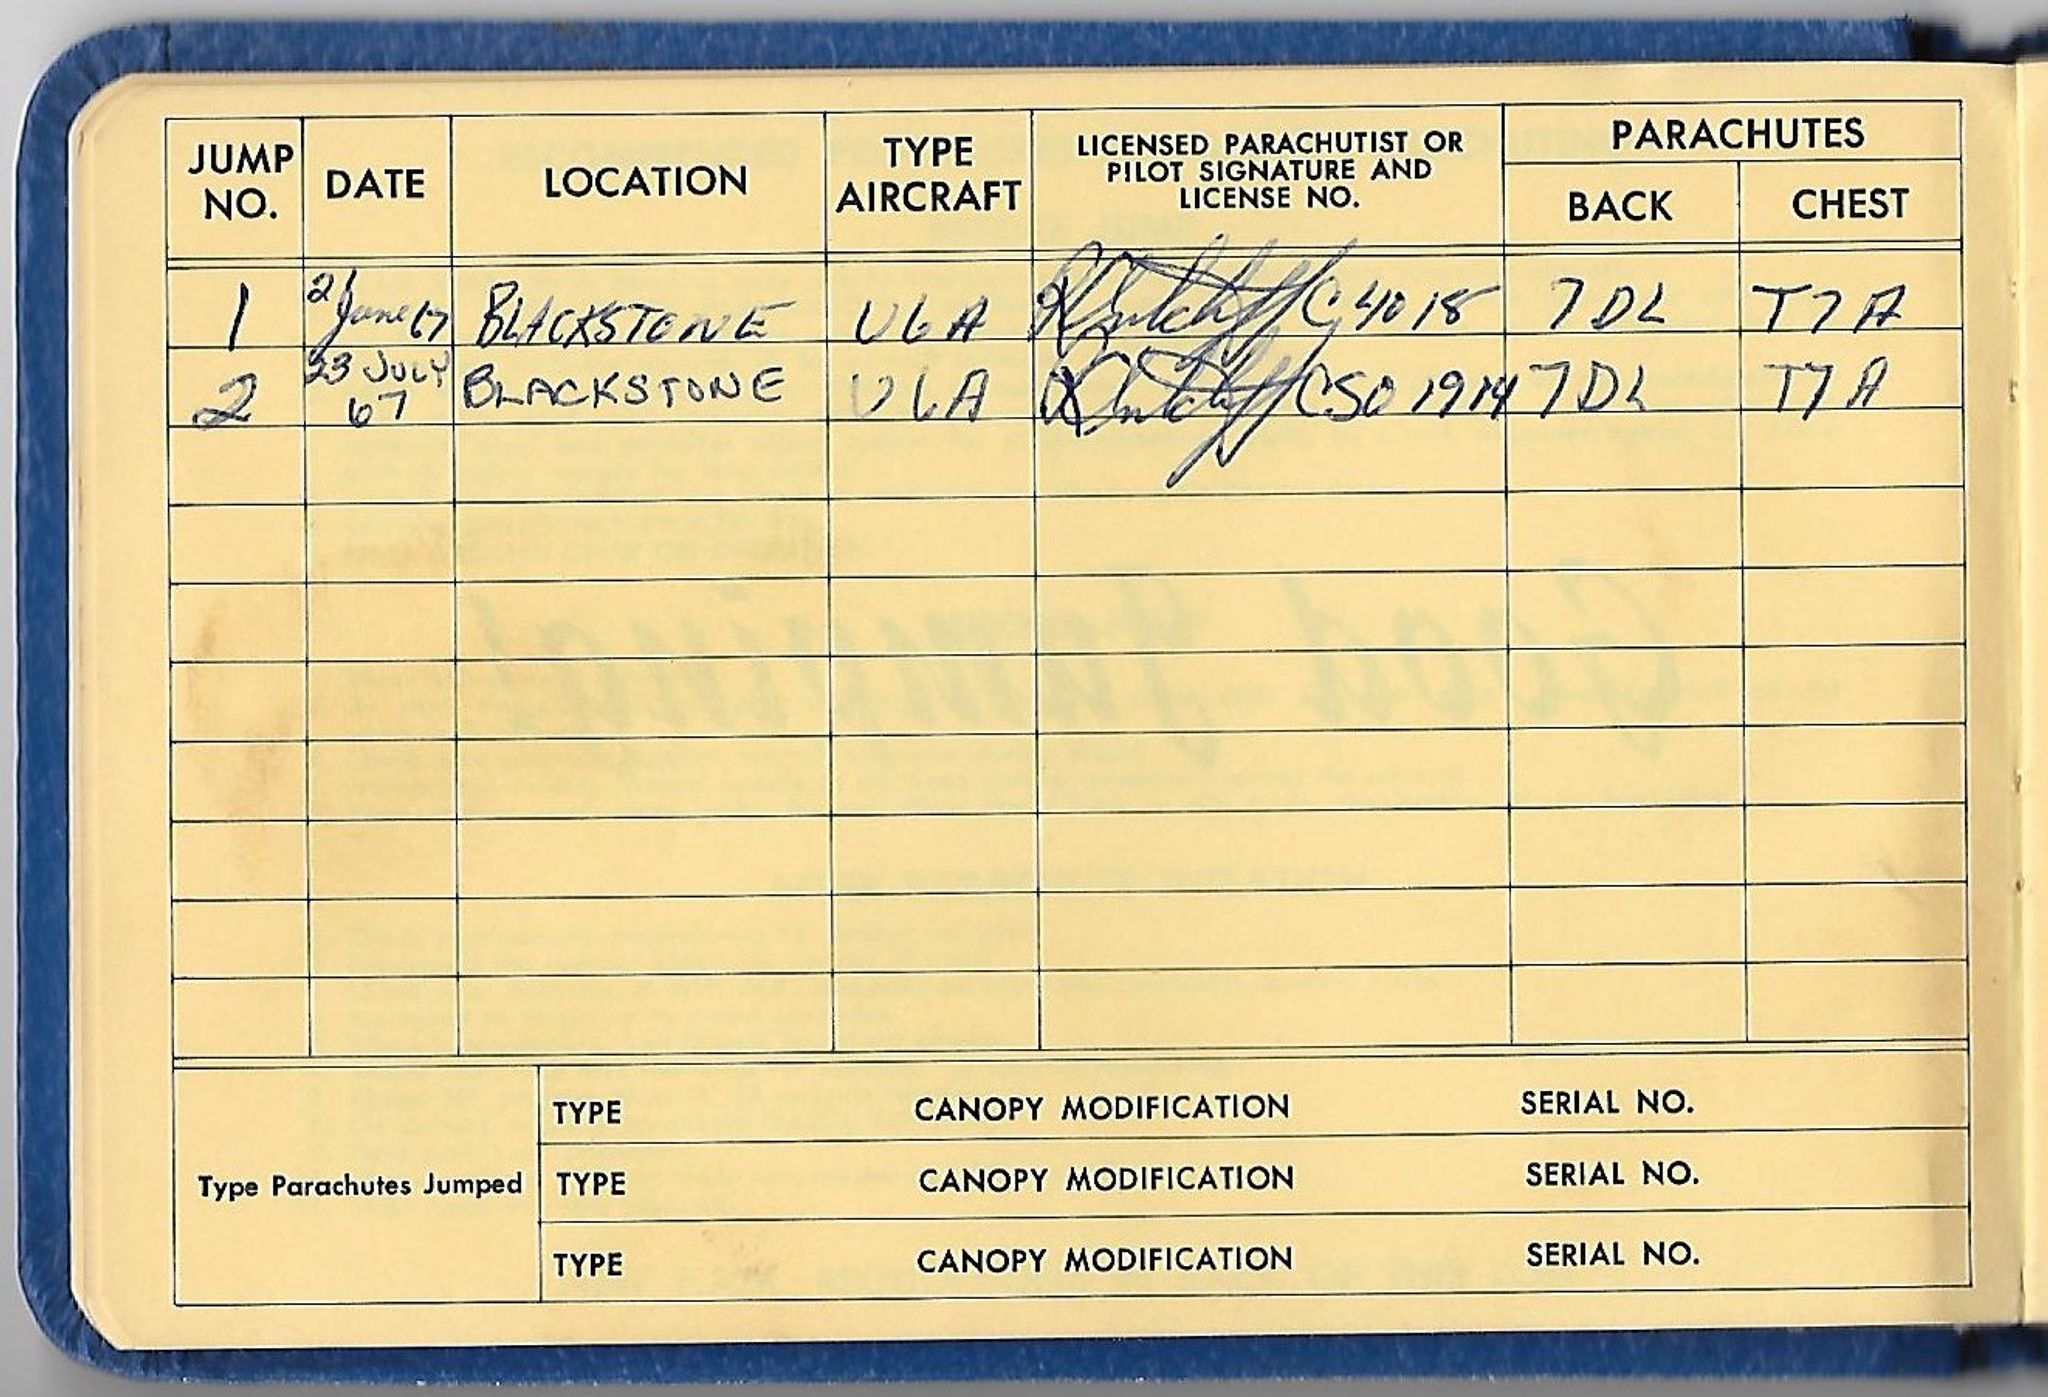 JUMP NO.
DATE
LOCATION
TYPE AIRCRAFT
LICENSED PARACHUTIST OR
PILOT SIGNATURE AND
LICENSE NO.
PARACHUTES
BACK
CHEST
1 2 June 67 BLACKSTONE U6A C4018 7DL T7A
2 23 JULY 67 BLACKSTONE U6A CSO 1914 7DL T7A
Type Parachutes Jumped
TYPE CANOPY MODIFICATION SERIAL NO.
TYPE CANOPY MODIFICATION SERIAL NO.
TYPE CANOPY MODIFICATION SERIAL NO.